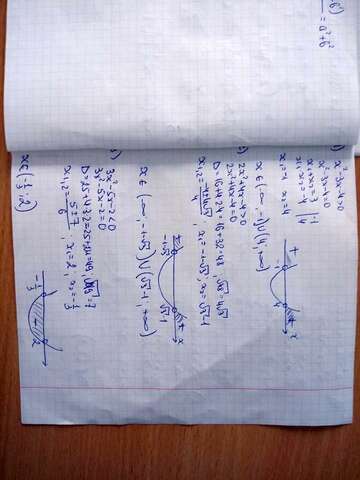 б)
= a² + b²
x² - 3x - 4 > 0
x² - 3x - 4 = 0
x₁ + x₂ = 3 | -1
x₁ · x₂ = -4 | 4
x₁ = -1 x₂ = 4
x ∈ (-∞; -1) ∪ (4; +∞)
+ - + x
-1 4
2x² + 4x - 4 > 0
2x² + 4x - 4 = 0
D = 16 + 4·2·4 = 16 + 32 = 48, √48 = 4√3
x₁,₂ = (-4 ± 4√3)/4, x₁ = -1-√3, x₂ = √3-1
x ∈ (-∞; -1-√3) ∪ (√3-1; +∞)
+ - + x
-1-√3 √3-1
3x² - 5x - 2 < 0
3x² - 5x - 2 = 0
D = 25 + 4·3·2 = 25 + 24 = 49, √49 = 7
x₁,₂ = (5 ± 7)/6, x₁ = 2, x₂ = -1/3
x ∈ (-1/3; 2)
-1/3 2